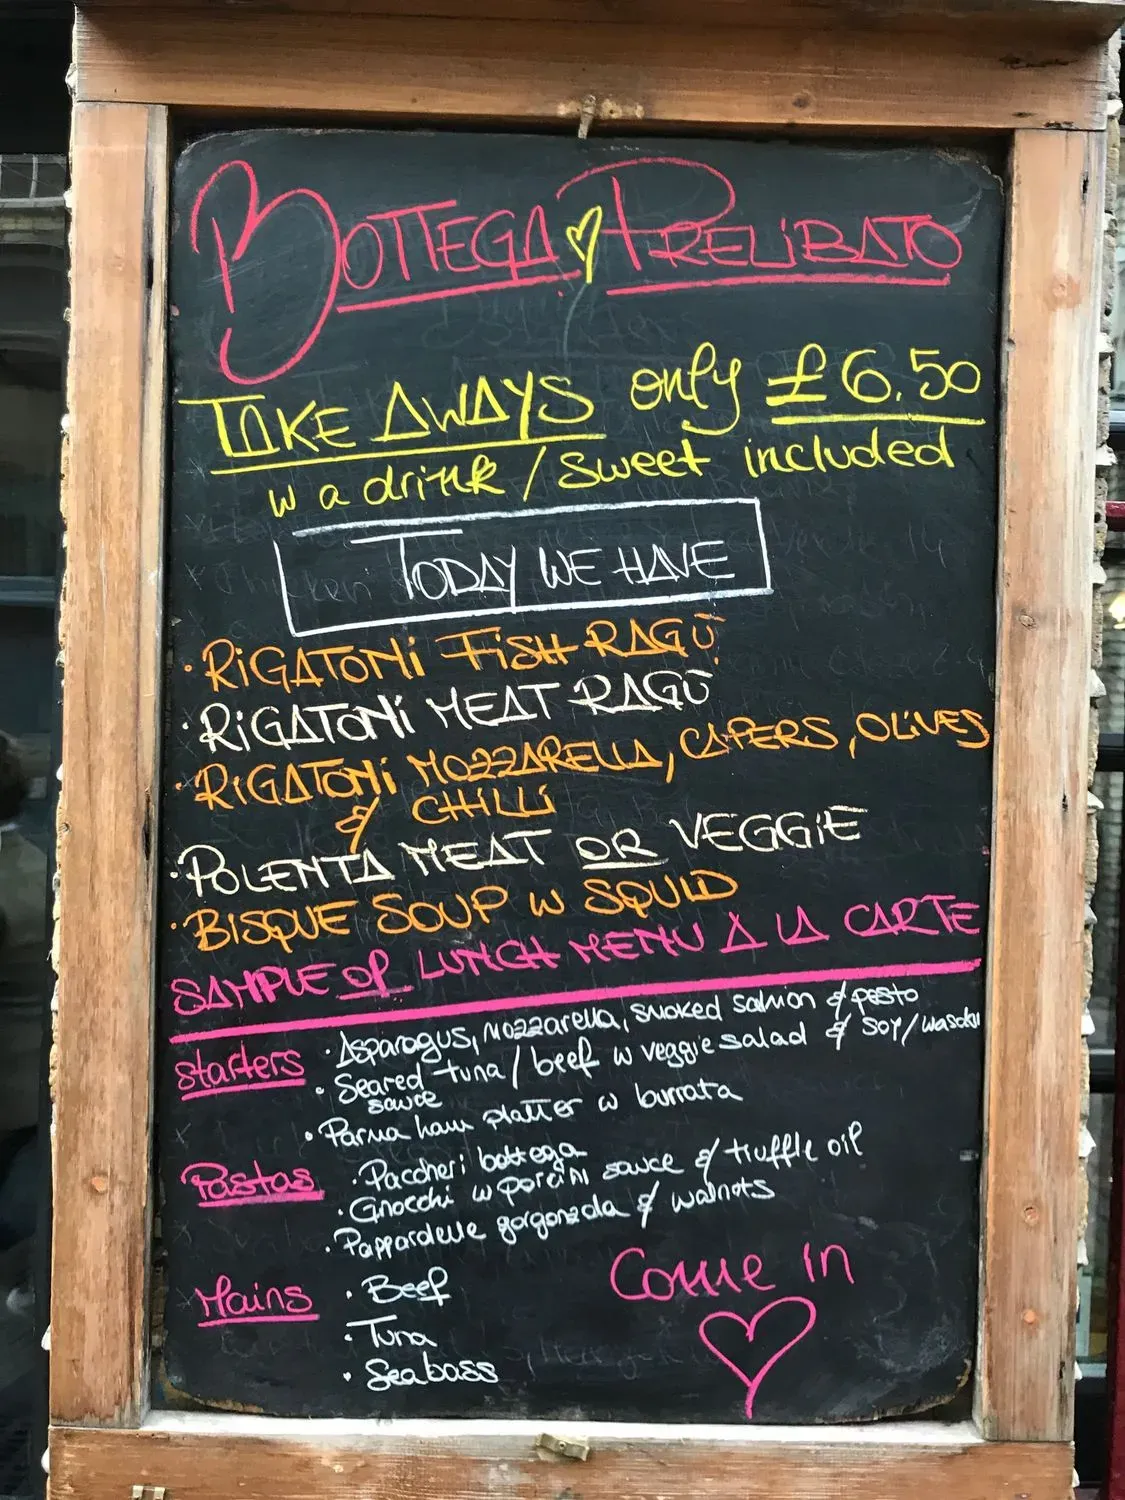 BOTTEGA PRELIBATO
TAKE AWAYS only £6.50
w a drink / sweet included
TODAY WE HAVE
· RIGATONI FISH RAGŪ
· RIGATONI MEAT RAGŪ
· RIGATONI MOZZARELLA, CAPERS, OLIVES
& CHILLI
· POLENTA MEAT OR VEGGIE
· BISQUE SOUP W SQUID
SAMPLE OF LUNCH MENU A LA CARTE
Starters · Asparagus, mozzarella, smoked salmon & pesto
· Seared tuna / beef w veggie salad & soy/wasabi
sauce
· Parma ham platter w burrata
Pastas · Paccheri bottega
· Gnocchi w porcini sauce & truffle oil
· Pappardelle gorgonzola & walnots
Mains · Beef
· Tuna
· Seabass
Come in